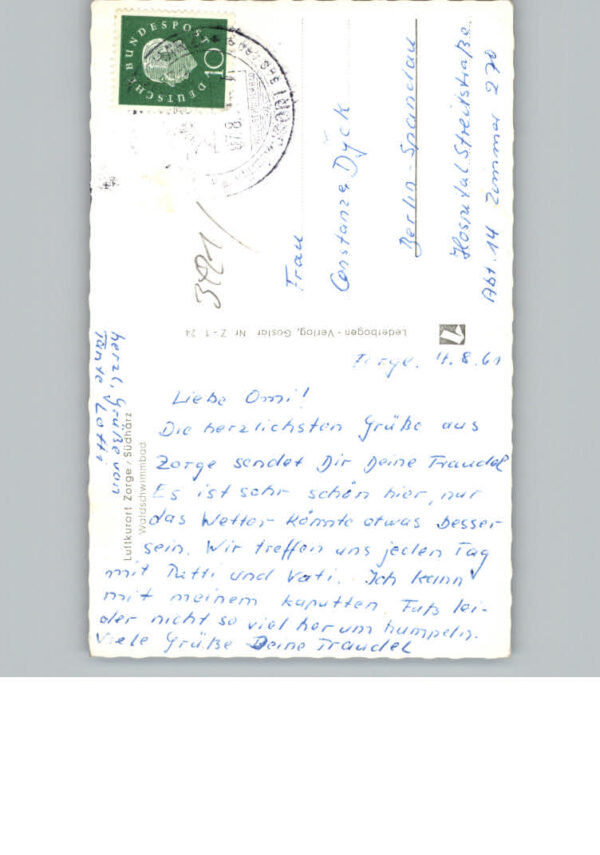 DEUTSCHE BUNDESPOST
10
3421/
Frau
Constanze Dyck
Berlin Spandau
Hospital Streitstraße.
Abt. 14 Zimmer 270
Lederbogen-Verlag, Goslar Nr. Z-1 24
Zorge, 4.8.61
Liebe Omi!
Die herzlichsten Grüße aus
Zorge sendet Dir Deine Traudel
Es ist sehr schön hier, nur
das Wetter könnte etwas besser
sein. Wir treffen uns jeden Tag
mit Putti und Vati. Ich kann
mit meinem kaputten Fuß lei-
der nicht so viel herum humpeln.
Viele Grüße Deine Traudel
herzl. Grüße von
Tante Lotti
Luftkurort Zorge / Südharz
Waldschwimmbad